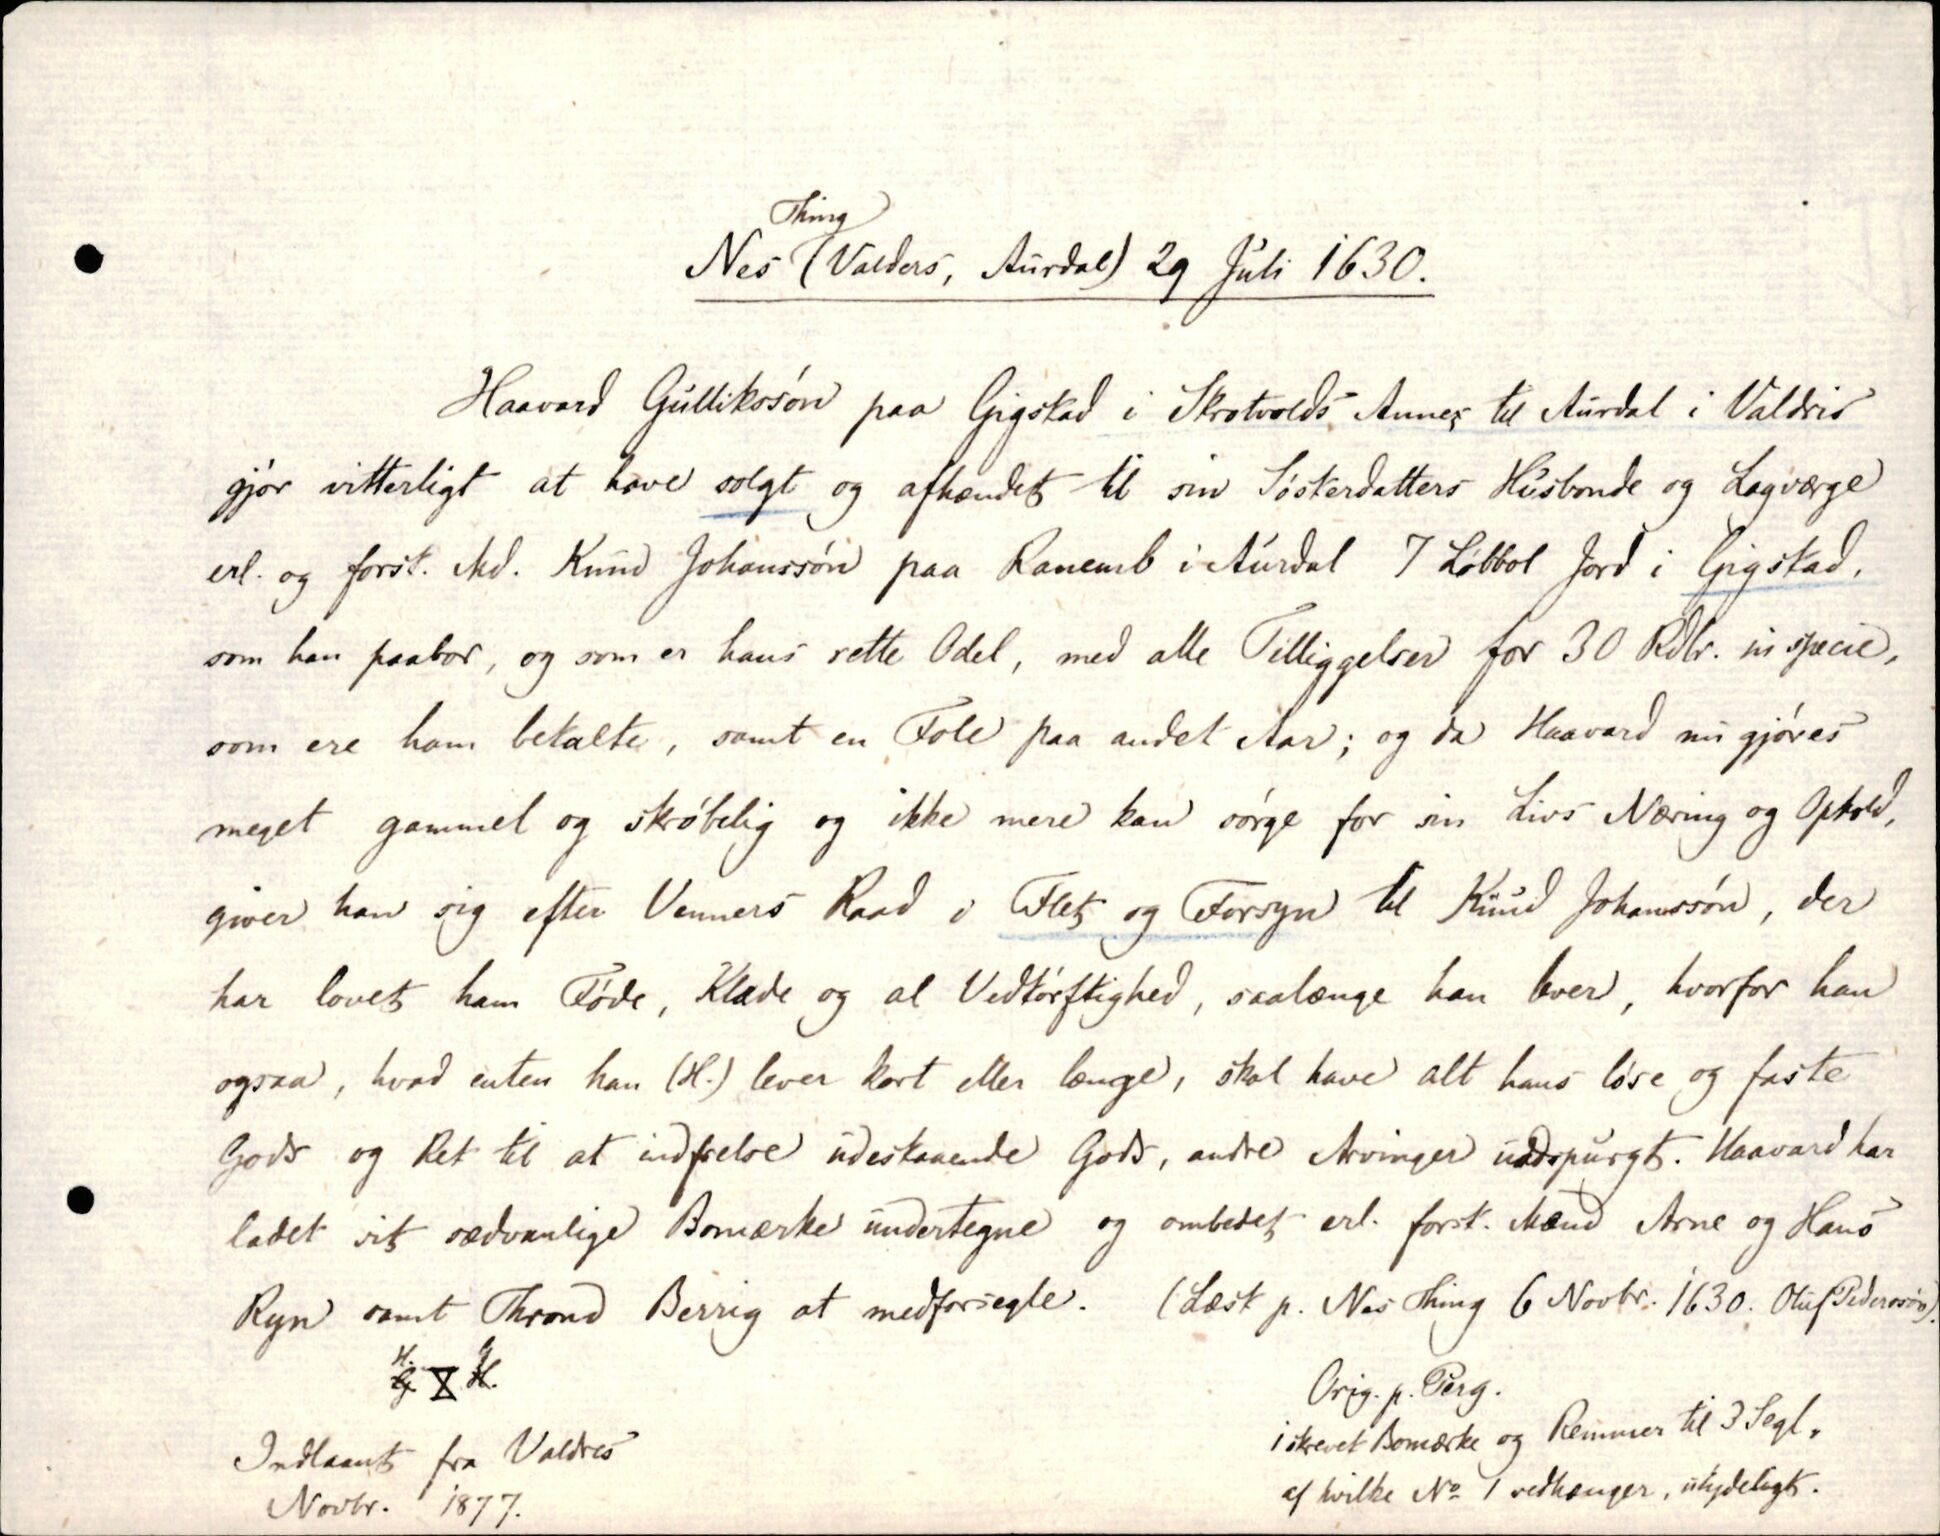 Thing
Nes (Valders, Aurdal) 29 Juli 1630.
Haavard Gullikssön paa Gigstad i Skrotvolds Annex til Aurdal i Valdris
gjör vitterligt at have solgt og afhændet til sin Sösterdatters Husbonde og Lagværge
erl. og forst. Md. Knud Johanssön paa Ranemb i Aurdal 7 Löbbol Jord i Gigstad,
som han paabor, og som er hans rette Odel, med alle Tilliggelser for 30 Rdlr. in specie,
som ere ham betalte, samt en Fole paa andet Aar; og da Haavard nu gjöres
meget gammel og skröbelig og ikke mere kan sörge for sin Livs Næring og Ophold,
giver han sig efter Venners Raad i Flet og Forsyn til Knud Johanssön, der
har lovet ham Föde, Klæde og al Vedtörftighed, saalænge han lever, hvorfor han
ogsaa, hvad enten han (H.) lever kort eller længe, skal have alt hans löse og faste
Gods og Ret til at indfrelse udestaaende Gods, andre Arvinger uadspurgt. Haavard har
ladet sit sædvanlige Bomærke undertegne og ombedet erl. forst. Mænd Arne og Hans
Ryn samt Thrond Berrig at medforsegle. (Læst p. Nes Thing 6 Novbr. 1630. Oluf Pederssön).
H. G
G X H.
Orig. p. Perg.
i skrevet Bomærke og Remmer til 3 Segl,
af hvilke No 1 vedhænger, utydeligt.
Indlaant fra Valdres
Novbr. 1877.